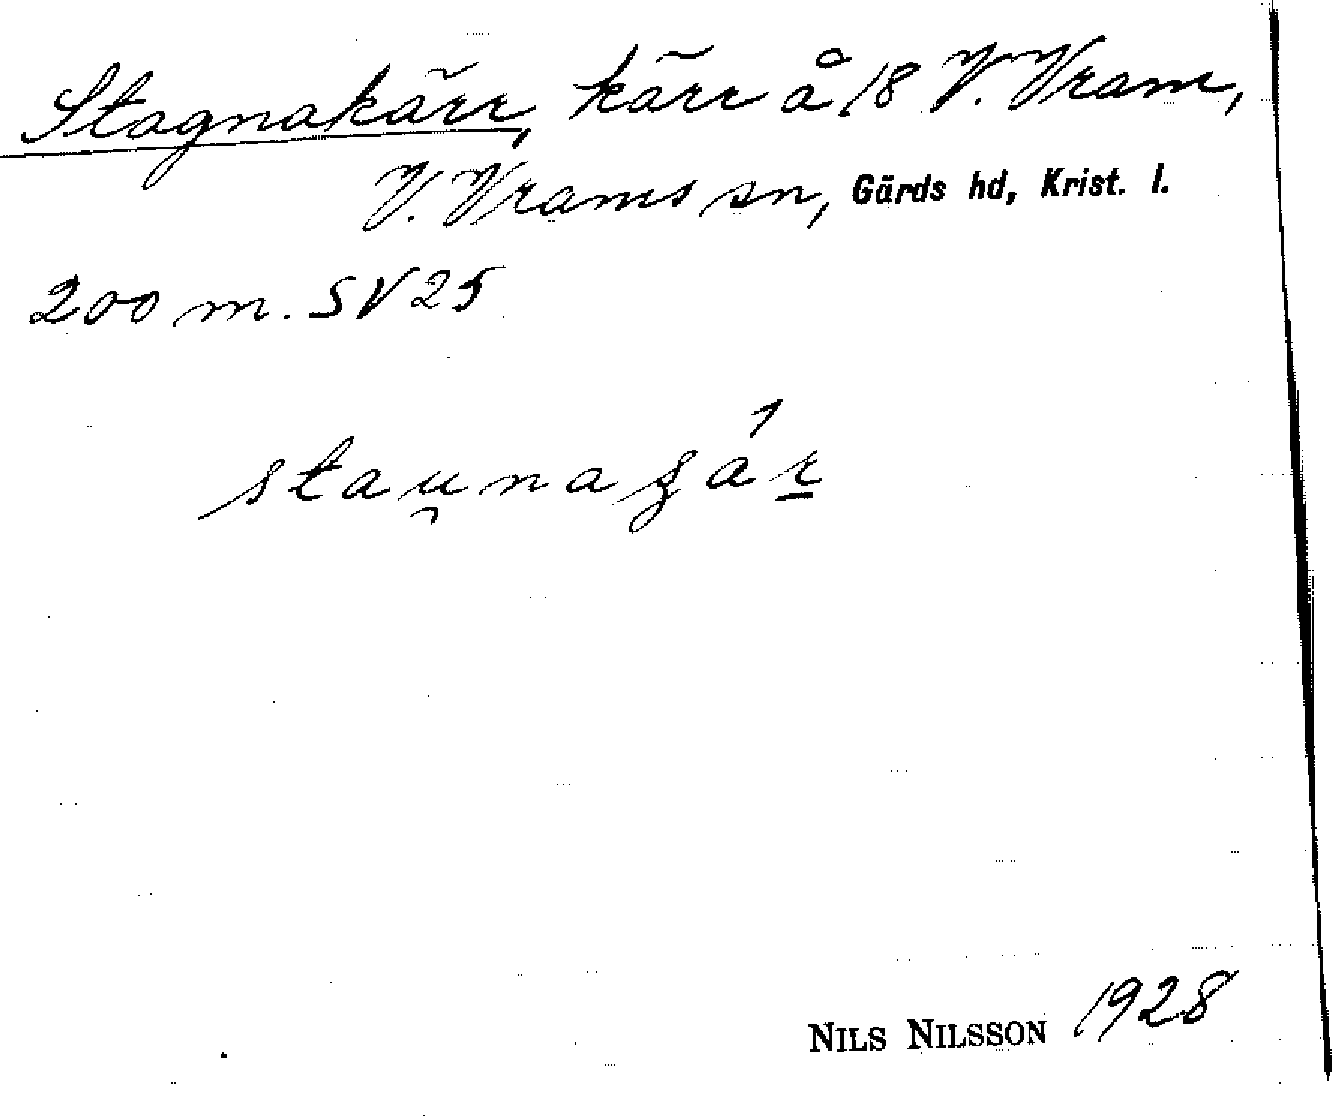 Stagnakärr, kärr å 18 V. Vram,
V. Vrams sn, Gärds hd, Krist. l.
200 m. SV 25
1928
NILS NILSSON